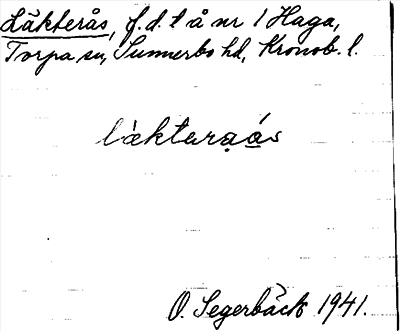 Läkterås, f.d. t å nr 1 Haga,
Torpa sn, Sunnerbo hd, Kronob. l.
O. Segerbäck 1941.